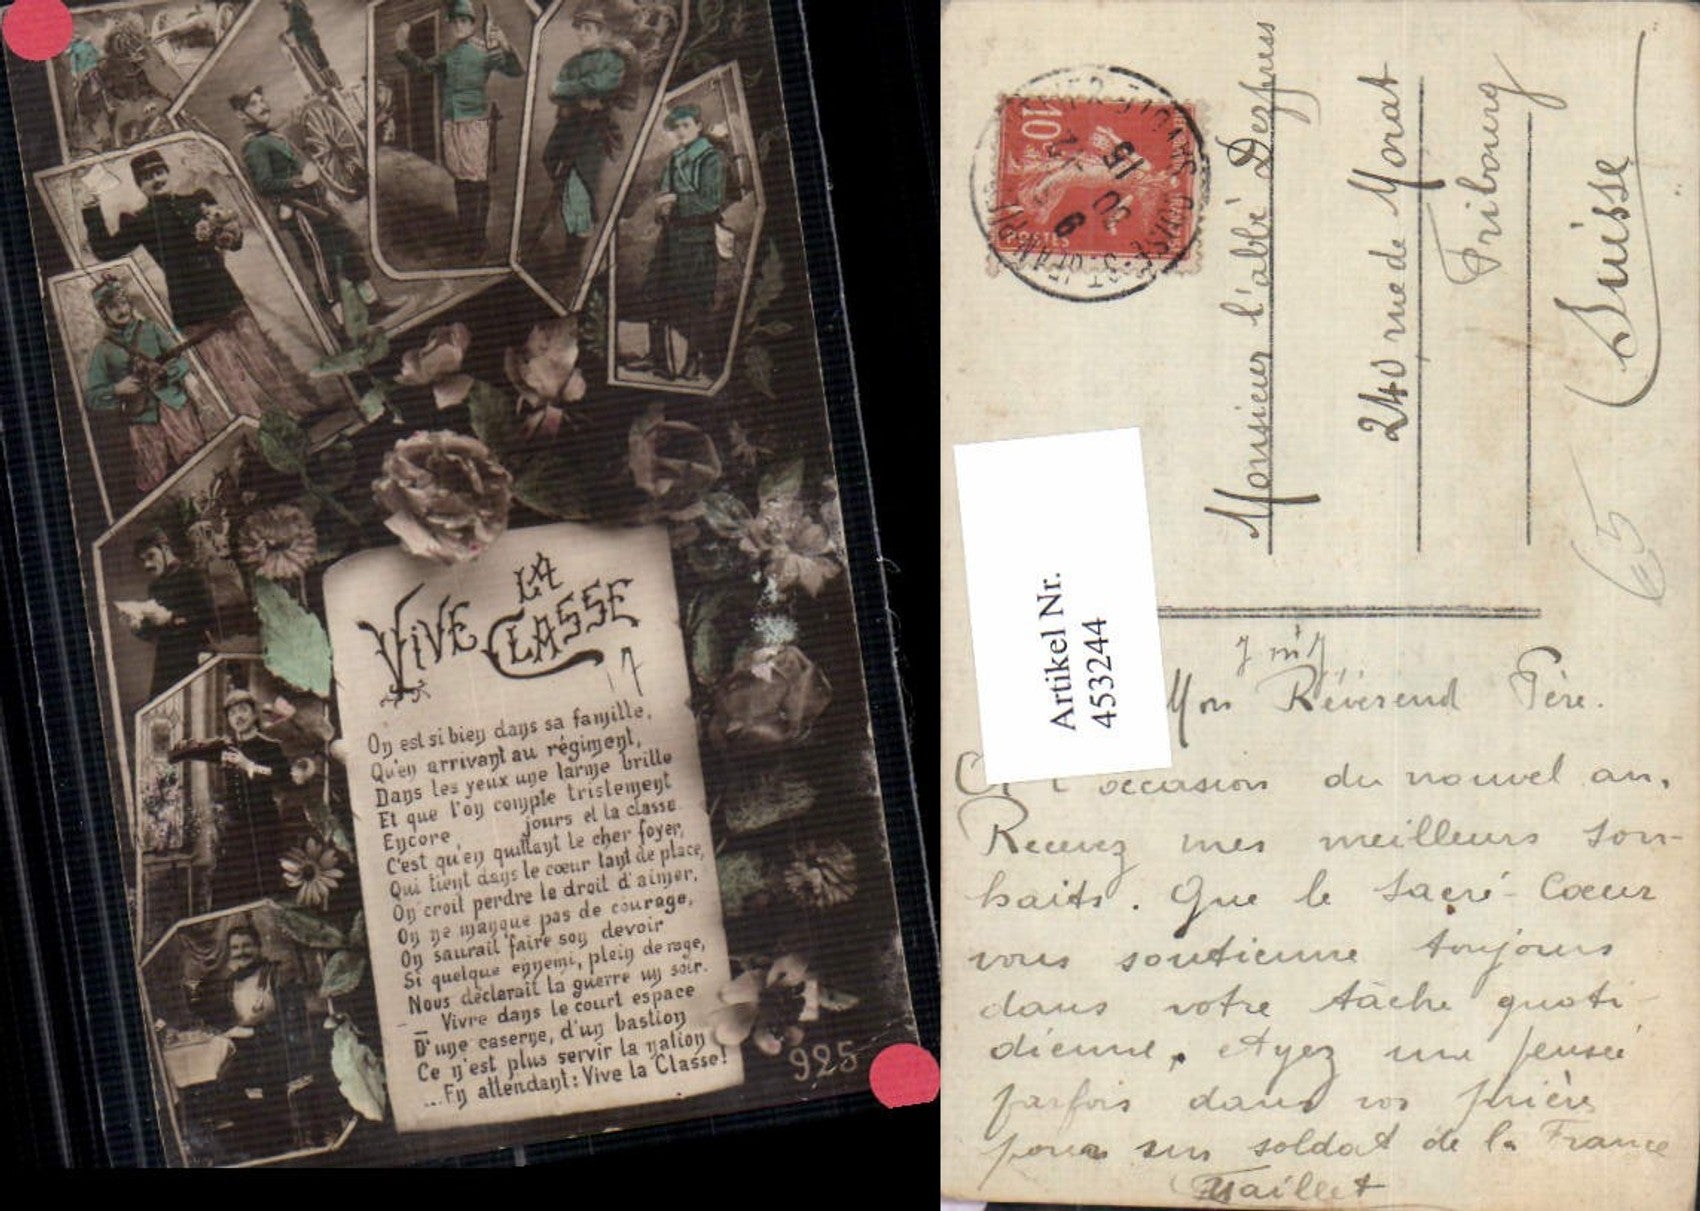 VIVE LA CLASSE
17
On est si bien dans sa famille,
Qu'en arrivant au régiment,
Dans les yeux une larme brille
Et que l'on compte tristement
Encore, jours et la classe.
C'est qu'en quittant le cher foyer,
Qui tient dans le cœur tant de place,
On croit perdre le droit d'aimer,
On ne manque pas de courage,
On saurait faire son devoir
Si quelque ennemi, plein de rage,
Nous déclarait la guerre un soir.
_ Vivre dans le court espace
D'une caserne, d'un bastion
Ce n'est plus servir la nation
...En attendant: Vive la Classe!
925
10
POSTES
Monsieur l'abbé
240 rue de Morat
Fribourg
Suisse
65
Artikel Nr.
453244
Mon Révérend Père.
l'occasion du nouvel an,
Recevez mes meilleurs sou-
haits. Que le Sacré-Coeur
vous soutienne toujours
dans votre tâche quoti-
dienne. Ayez une pensée
parfois dans vos prières
pour un soldat de la France